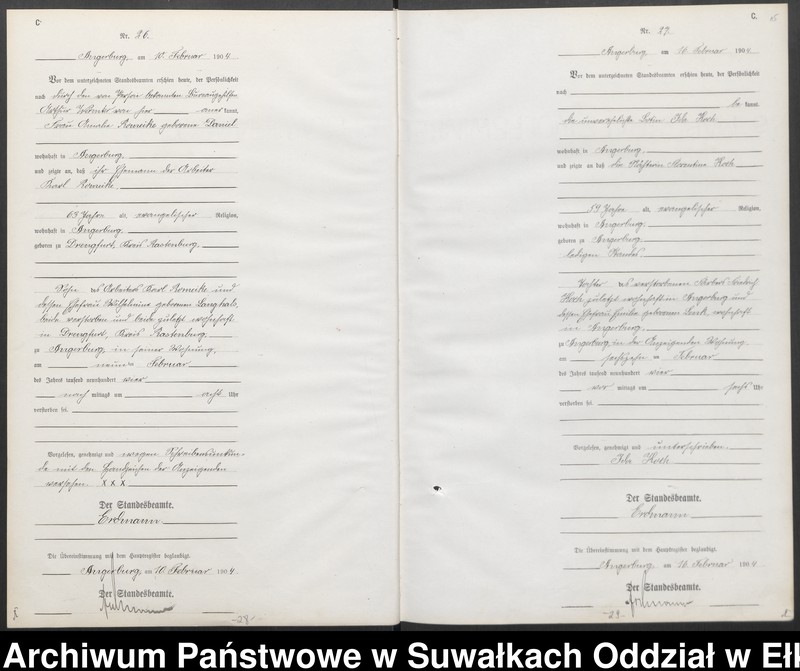 C
Nr. 26.
Angerburg, am 10. Februar 1904
Vor dem unterzeichneten Standesbeamten erschien heute, der Persönlichkeit
nach durch den von Person bekannten Büreaugehilfen
kannt,
Frau Amalie Romeike geborene Daniel
wohnhaft in Angerburg,
und zeigte an, daß ihr Ehemann der Arbeiter
Karl Romeike,
63 Jahre alt, evangelischer Religion,
wohnhaft in Angerburg,
geboren zu Drengfurt, Kreis Rastenburg,
Sohn des Arbeiters Karl Romeike und
dessen Ehefrau Wilhelmine geborenen Langhals,
beide verstorben und beide zuletzt wohnhaft
in Drengfurt, Kreis Rastenburg,
zu Angerburg, in seiner Wohnung,
am neunten Februar
des Jahres tausend neunhundert vier
nach mittags um acht Uhr
verstorben sei.
Vorgelesen, genehmigt und wegen Schreibensunkun-
de mit den Handzeichen der Anzeigenden
versehen. X X X
Der Standesbeamte.
Erdmann
Die Übereinstimmung mit dem Hauptregister beglaubigt.
Angerburg, am 10. Februar 1904.
Der Standesbeamte.
-28-
C.
Nr. 27.
Angerburg am 16. Februar 1904
Vor dem unterzeichneten Standesbeamten erschien heute, der Persönlichkeit
nach
be kannt,
die unverehelichte Ida Koch
wohnhaft in Angerburg,
und zeigte an, daß die Koch
54 Jahre alt, evangelischer Religion,
wohnhaft in Angerburg,
geboren zu Angerburg
ledigen Standes
Tochter des verstorbenen
Koch zuletzt wohnhaft in Angerburg und
dessen Ehefrau geborenen wohnhaft
in Angerburg,
zu Angerburg, in der Anzeigenden Wohnung
am sechzehn ten Februar
des Jahres tausend neunhundert vier
vor mittags um sechs Uhr
verstorben sei.
Vorgelesen, genehmigt und unterschrieben.
Ida Koch
Der Standesbeamte.
Erdmann
Die Übereinstimmung mit dem Hauptregister beglaubigt.
Angerburg, am 16. Februar 1904.
Der Standesbeamte.
-29-
Archiwum Państwowe w Suwałkach Oddział w Eł